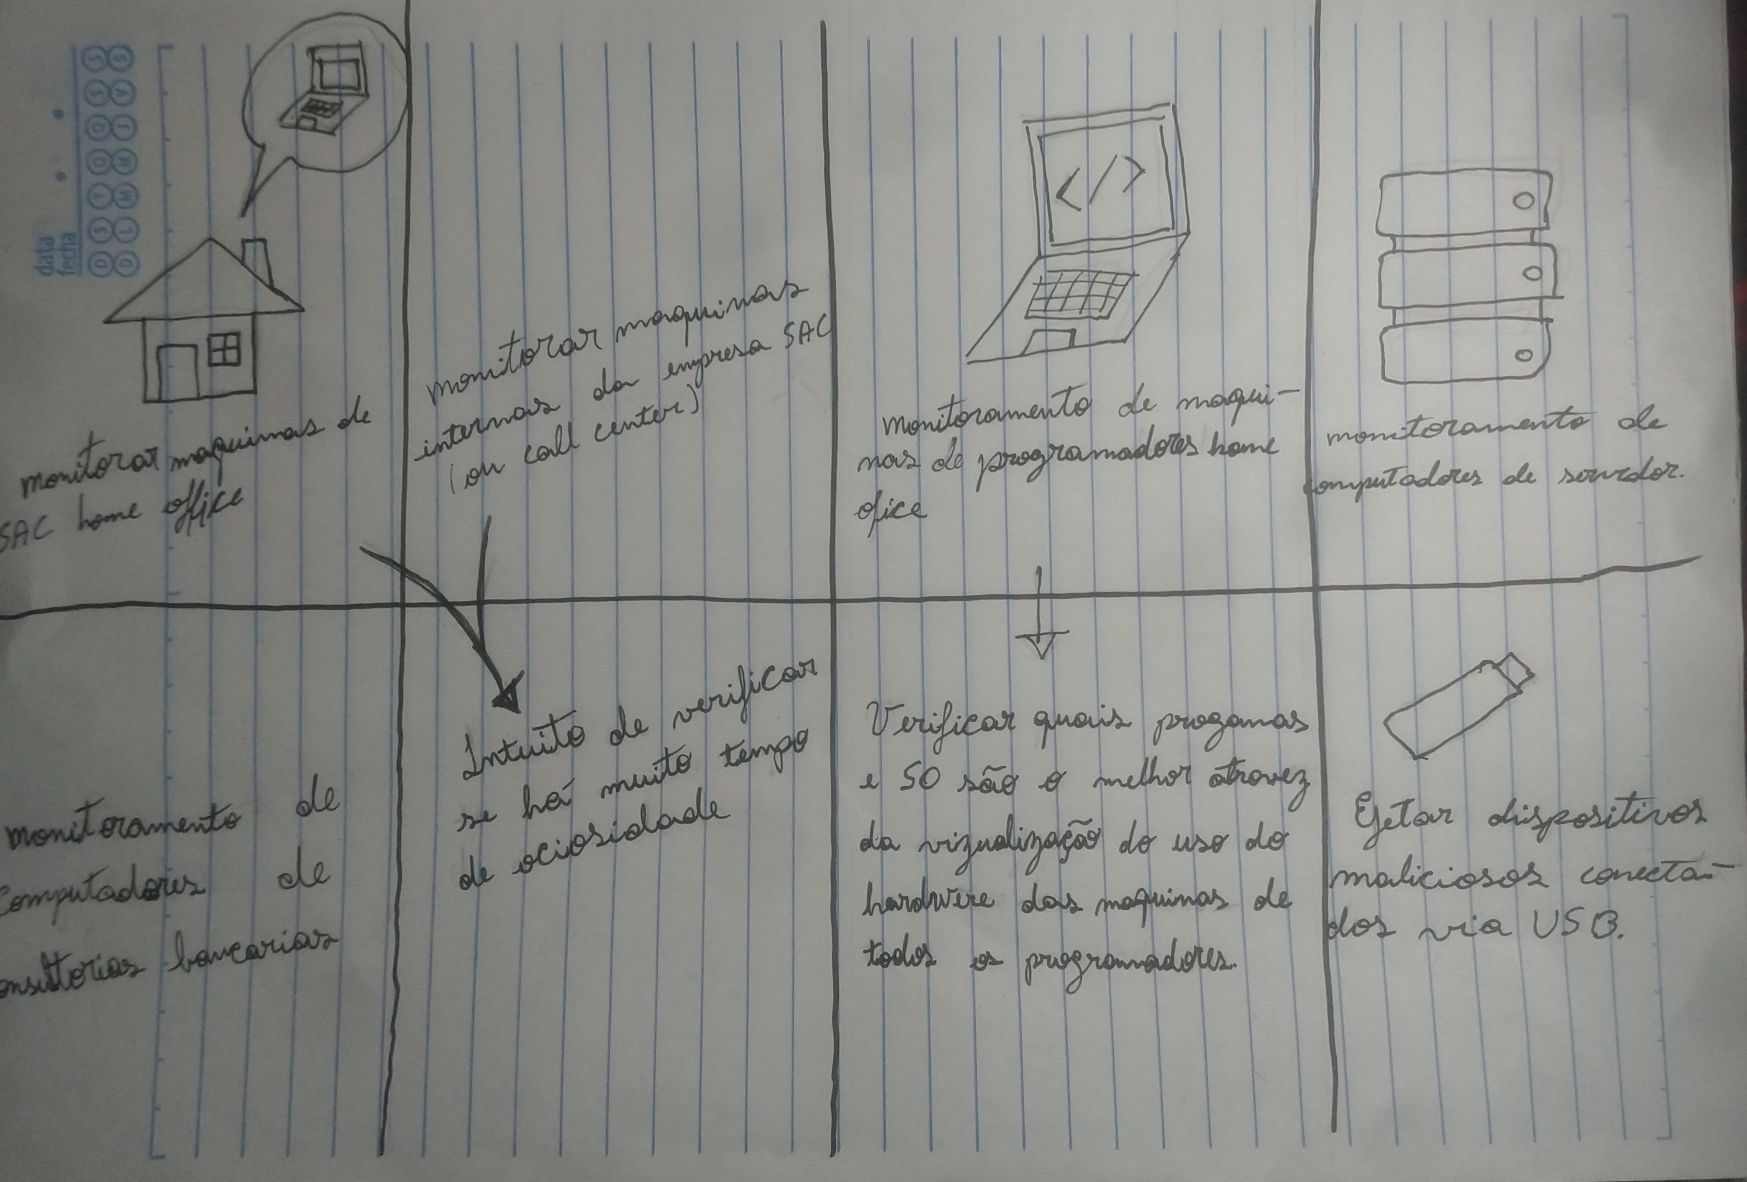 data
fecha
D S T Q Q S S
D L M M J V S
monitorar maquinas de
SAC home office
monitorar maquinas
internas da empresa SAC
(ou call center)
</>
monitoramento de maqui-
nas de programadores home
ofice
monitoramento de
computadores de servidor.
monitoramento de
Computadores de
onsultorias bancarias
Intuito de verificar
se há muito tempo
de ociosidade
Verificar quais progamas
e SO são o melhor atravez
da vizualização do uso do
hardwere das maquinas de
todos os programadores.
Ejetar dispositivos
maliciosos conecta-
dos via USB.